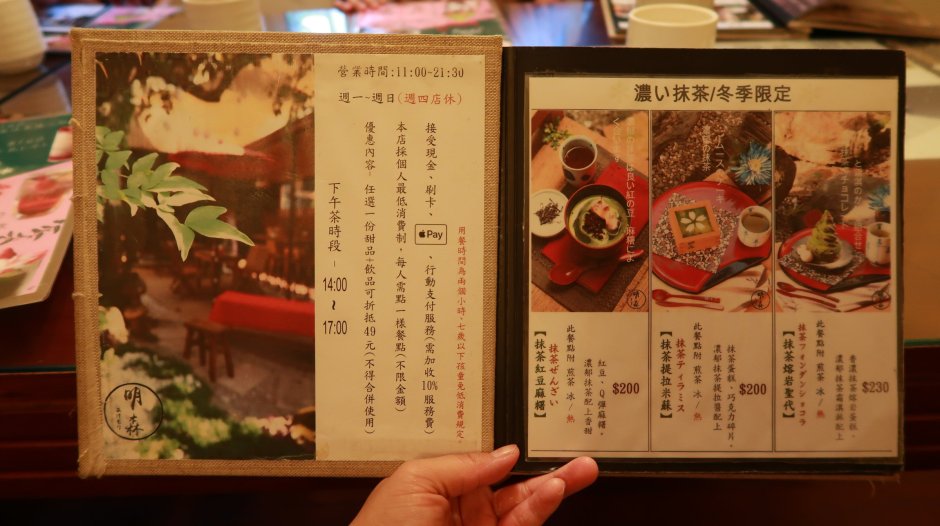 營業時間:11:00~21:30
週一~週日(週四店休)
用餐時間為兩個小時、七歲以下孩童免低消費規定。
接受現金、刷卡、 Pay 、行動支付服務(需加收10%服務費)
本店採個人最低消費制，每人需點一樣餐點(不限金額)
優惠內容。任選一份甜品+飲品可折抵49元(不得合併使用)
下午茶時段-
14:00
~
17:00
明森
濃い抹茶/冬季限定
紅豆、Q彈麻糬，
濃郁抹茶配上香甜
$200
此餐點附 煎茶 冰/熱
抹茶ぜんざい
【抹茶紅豆麻糬】
抹茶蛋糕、巧克力碎片，
濃郁抹茶提拉醬配上
$200
此餐點附 煎茶 冰/熱
抹茶ティラミス
【抹茶提拉米蘇】
香濃抹茶熔岩蛋糕，
濃郁抹茶霜淇淋配上
$230
此餐點附 煎茶 冰/熱
抹茶フォンダンショコラ
【抹茶熔岩聖代】